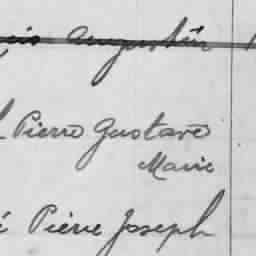 Augustin
Pierre Gustave
Marie
Pierre Joseph